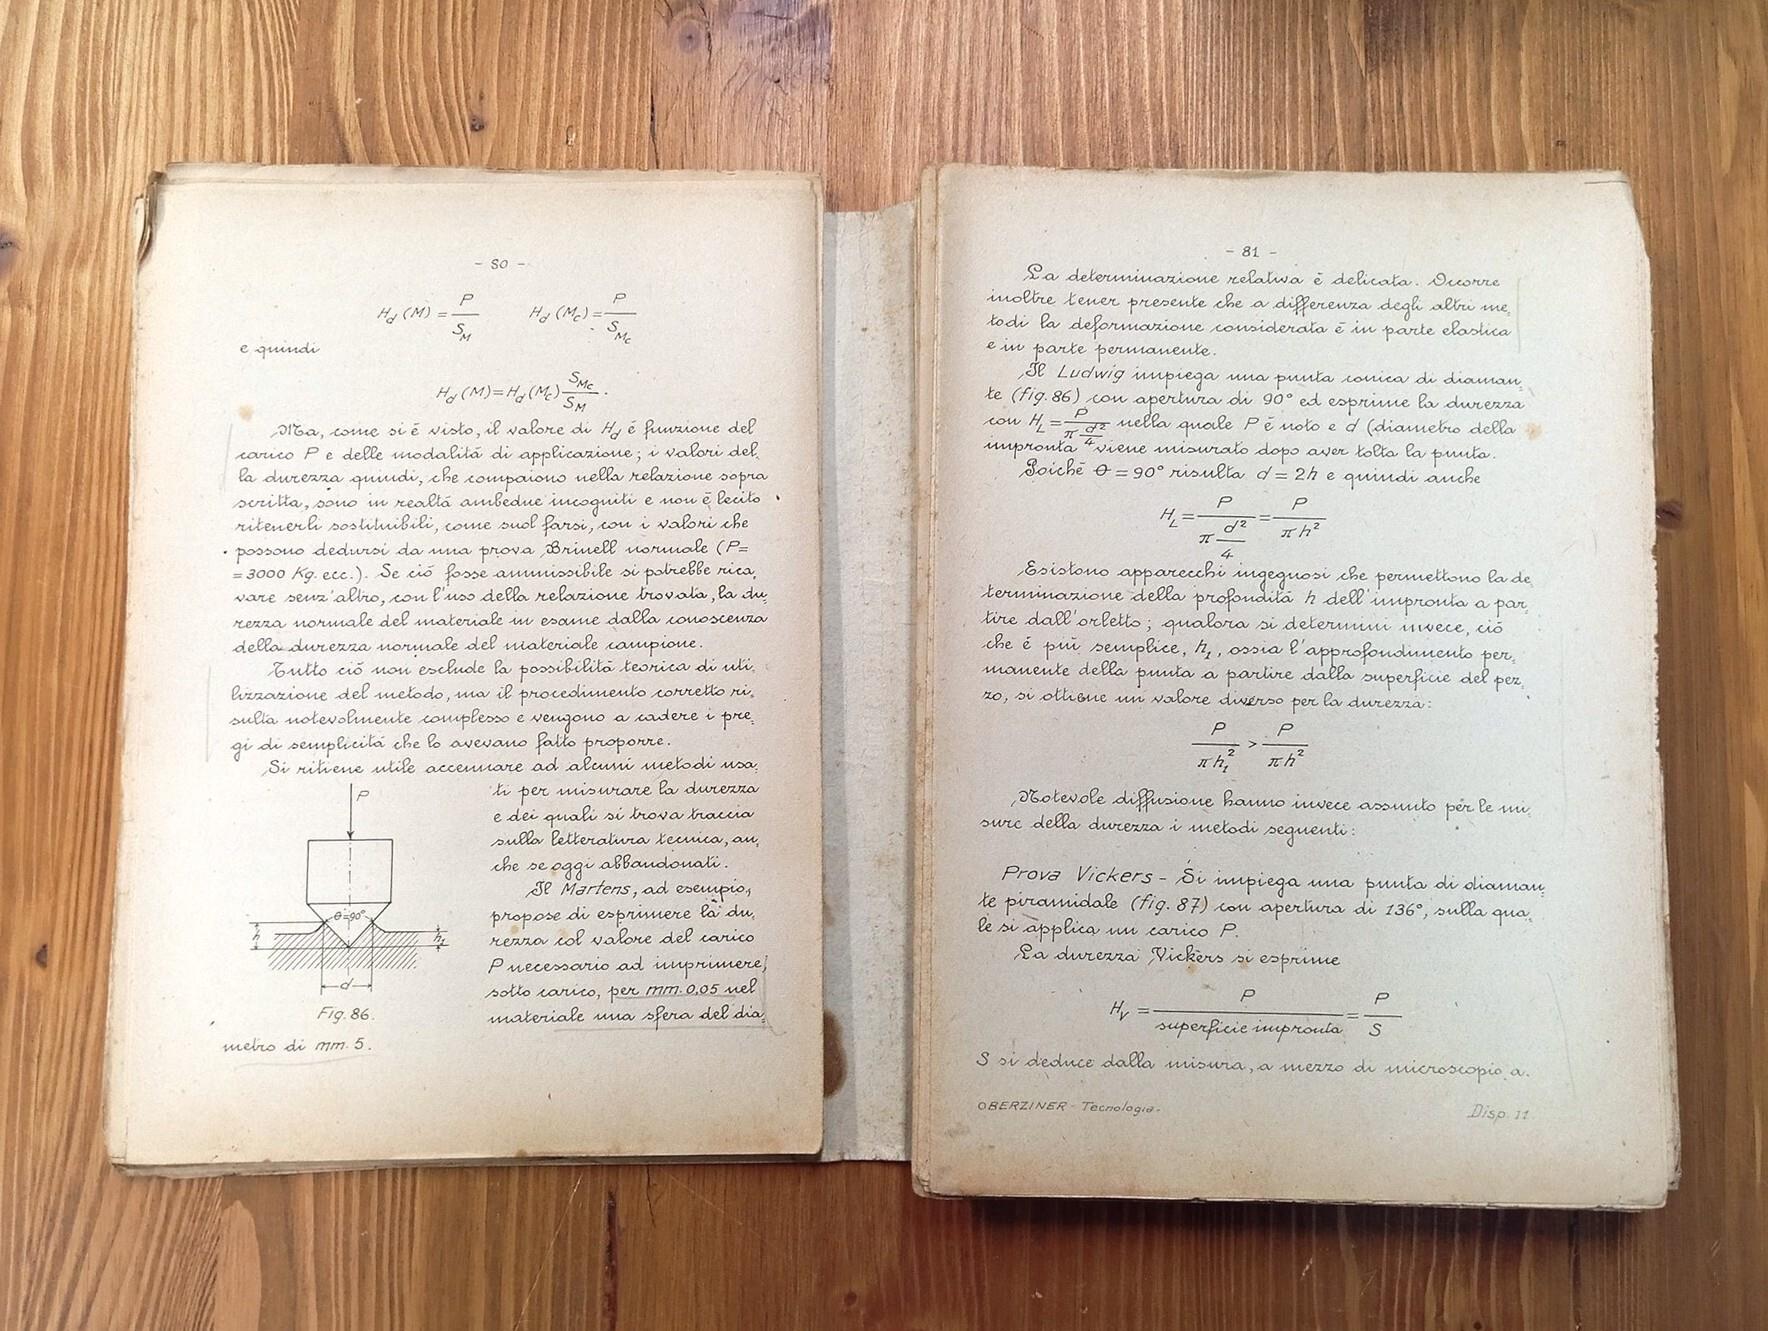 - 80 -
H_d (M) = P/S_M    H_d (M_c) = P/S_Mc
e quindi
H_d (M) = H_d (M_c) S_Mc/S_M .
Ma, come si è visto, il valore di H_d è funzione del
carico P e delle modalità di applicazione; i valori del,
la durezza quindi, che compaiono nella relazione sopra
scritta, sono in realtà ambedue incogniti e non è lecito
ritenerli sostituibili, come suol farsi, con i valori che
possono dedursi da una prova Brinell normale (P=
=3000 Kg. ecc.). Se ciò fosse ammissibile si potrebbe rica,
vare senz'altro, con l'uso della relazione trovata, la du,
rezza normale del materiale in esame dalla conoscenza
della durezza normale del materiale campione.
Tutto ciò non esclude la possibilità teorica di uti,
lizzazione del metodo, ma il procedimento corretto ri,
sulta notevolmente complesso e vengono a cadere i pre,
gi di semplicità che lo avevano fatto proporre.
Si ritiene utile accennare ad alcuni metodi usa,
ti per misurare la durezza
e dei quali si trova traccia
sulla letteratura tecnica, an,
che se oggi abbandonati.
Il Martens, ad esempio,
propose di esprimere la du,
rezza col valore del carico
P necessario ad imprimere,
sotto carico, per mm. 0,05 nel
materiale una sfera del dia,
metro di mm. 5.
P
θ=90°
h
h₁
d
Fig. 86.
- 81 -
La determinazione relativa è delicata. Occorre
inoltre tener presente che a differenza degli altri me,
todi la deformazione considerata è in parte elastica
e in parte permanente.
Il Ludwig impiega una punta conica di diaman,
te (fig. 86) con apertura di 90° ed esprime la durezza
con H_L = P/(π d²/4) nella quale P è noto e d (diametro della
impronta viene misurato dopo aver tolta la punta.
Poiché θ = 90° risulta d = 2h e quindi anche
H_L = P/(π d²/4) = P/(π h²)
Esistono apparecchi ingegnosi che permettono la de,
terminazione della profondità h dell'impronta a par,
tire dall'orletto; qualora si determini invece, ciò
che è più semplice, h₁, ossia l'approfondimento per,
manente della punta a partire dalla superficie del pez,
zo, si ottiene un valore diverso per la durezza:
P/(π h₁²) > P/(π h²)
Notevole diffusione hanno invece assunto per le mi,
sure della durezza i metodi seguenti:
Prova Vickers - Si impiega una punta di diaman,
te piramidale (fig. 87) con apertura di 136°, sulla qua,
le si applica un carico P.
La durezza Vickers si esprime
H_V = P/superficie impronta = P/S
S si deduce dalla misura, a mezzo di microscopio, a.
OBERZINER - Tecnologia.    Disp. 11